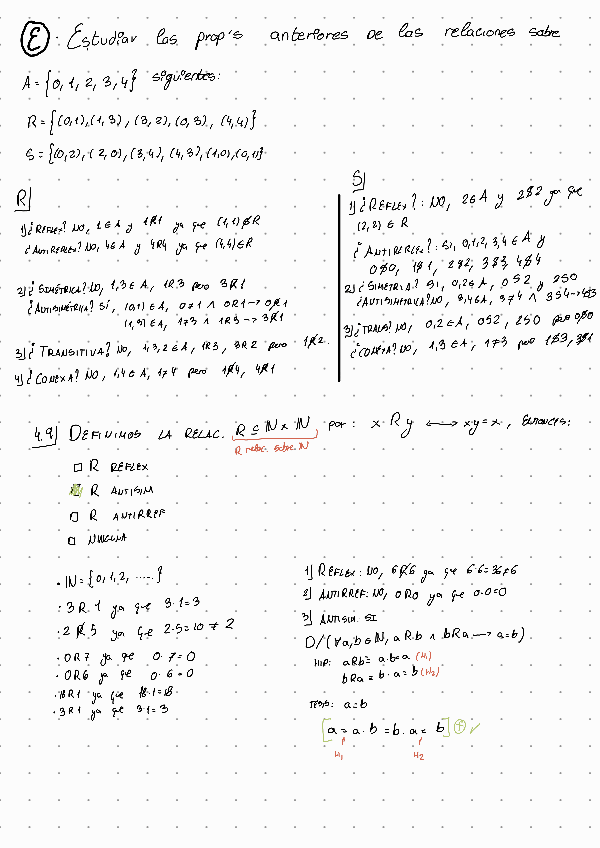 E. Estudiar las prop's anteriores de las relaciones sobre
A = {0, 1, 2, 3, 4} siguientes:
R = {(0,1), (1, 3), (3, 2), (0, 3), (4,4)}
S = {(0,2), (2, 0), (3,4), (4, 3), (1,0), (0,1)}
R|
1) ¿REFLEX? NO, 1 ∈ A y 1R̸1 ya que (1,1) ∉ R
¿ANTIREFLEX? NO, 4 ∈ A y 4R4 ya que (4,4) ∈ R
2) ¿SIMÉTRICA? NO, 1,3 ∈ A, 1R3 pero 3R̸1
¿ANTISIMÉTRICA? SÍ, (0,1) ∈ A, 0≠1 ∧ 0R1 → 0R̸1
(1,3) ∈ A, 1≠3 ∧ 1R3 → 3R̸1
3) ¿TRANSITIVA? NO, 1,3,2 ∈ A, 1R3, 3R2 pero 1R̸2.
4) ¿CONEXA? NO, 1,4 ∈ A, 1≠4 pero 1R̸4, 4R̸1
S|
1) ¿REFLEX?: NO, 2 ∈ A y 2S̸2 ya que
(2,2) ∈ R
¿ANTIREFLEX?: SI, 0,1,2,3,4 ∈ A y
0S̸0, 1S̸1, 2S̸2, 3S̸3, 4S̸4
2) ¿SIMETRIA? SI, 0,2 ∈ A, 0S2 y 2S0
¿ANTISIMETRICA? NO, 3,4 ∈ A, 3≠4 ∧ 3S4 → 4S3
3) ¿TRANS? NO, 0,2 ∈ A, 0S2, 2S0 pero 0S̸0
¿CONEXA? NO, 1,3 ∈ A, 1≠3 pero 1S̸3, 3S̸1
4.9| DEFINIMOS LA RELAC. R ⊆ ℕ × ℕ por: x R y ⟷ xy = x, ENTONCES:
R relac. sobre ℕ
R REFLEX
R ANTISIM
R ANTIRREF
NINGUNA
· ℕ = {0, 1, 2, .....}
· 3 R 1 ya que 3·1=3
· 2 R̸ 5 ya que 2·5=10 ≠ 2
· 0R7 ya que 0·7=0
· 0R6 ya que 0·6=0
· 18R1 ya que 18·1=18
· 3R1 ya que 3·1=3
1) REFLEX: NO, 6R̸6 ya que 6·6=36≠6
2) ANTIRREF: NO, 0R0 ya que 0·0=0
3) ANTISIM. SI
D/(∀a,b ∈ ℕ, aRb ∧ bRa → a=b)
HIP: aRb ≡ a·b=a (H₁)
bRa ≡ b·a=b (H₂)
TESIS: a=b
[a = a·b = b·a = b] ⊕ ✓
H₁ H₂